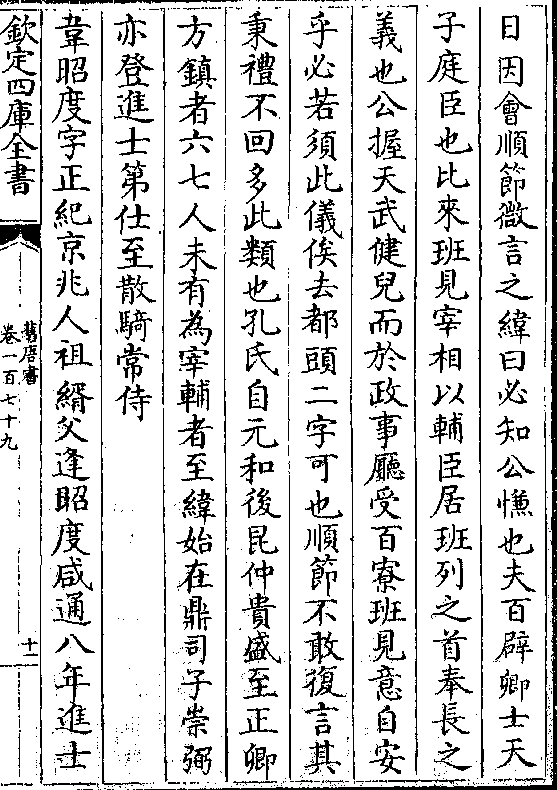 日因會順節微言之緯曰必知公慊也夫百辟卿士天
子庭臣也比來班見宰相以輔臣居班列之首奉長之
義也公握天武健兒而於政事廳受百寮班見意自安
乎必若須此儀俟去都頭二字可也順節不敢復言其
秉禮不回多此類也孔氏自元和後昆仲貴盛至正卿
方鎮者六七人未有為宰輔者至緯始在鼎司子崇弼
亦登進士第仕至散騎常侍
韋昭度字正紀京兆人祖縃父逢昭度咸通八年進士
欽定四庫全書
舊唐書
卷一百七十九
十一